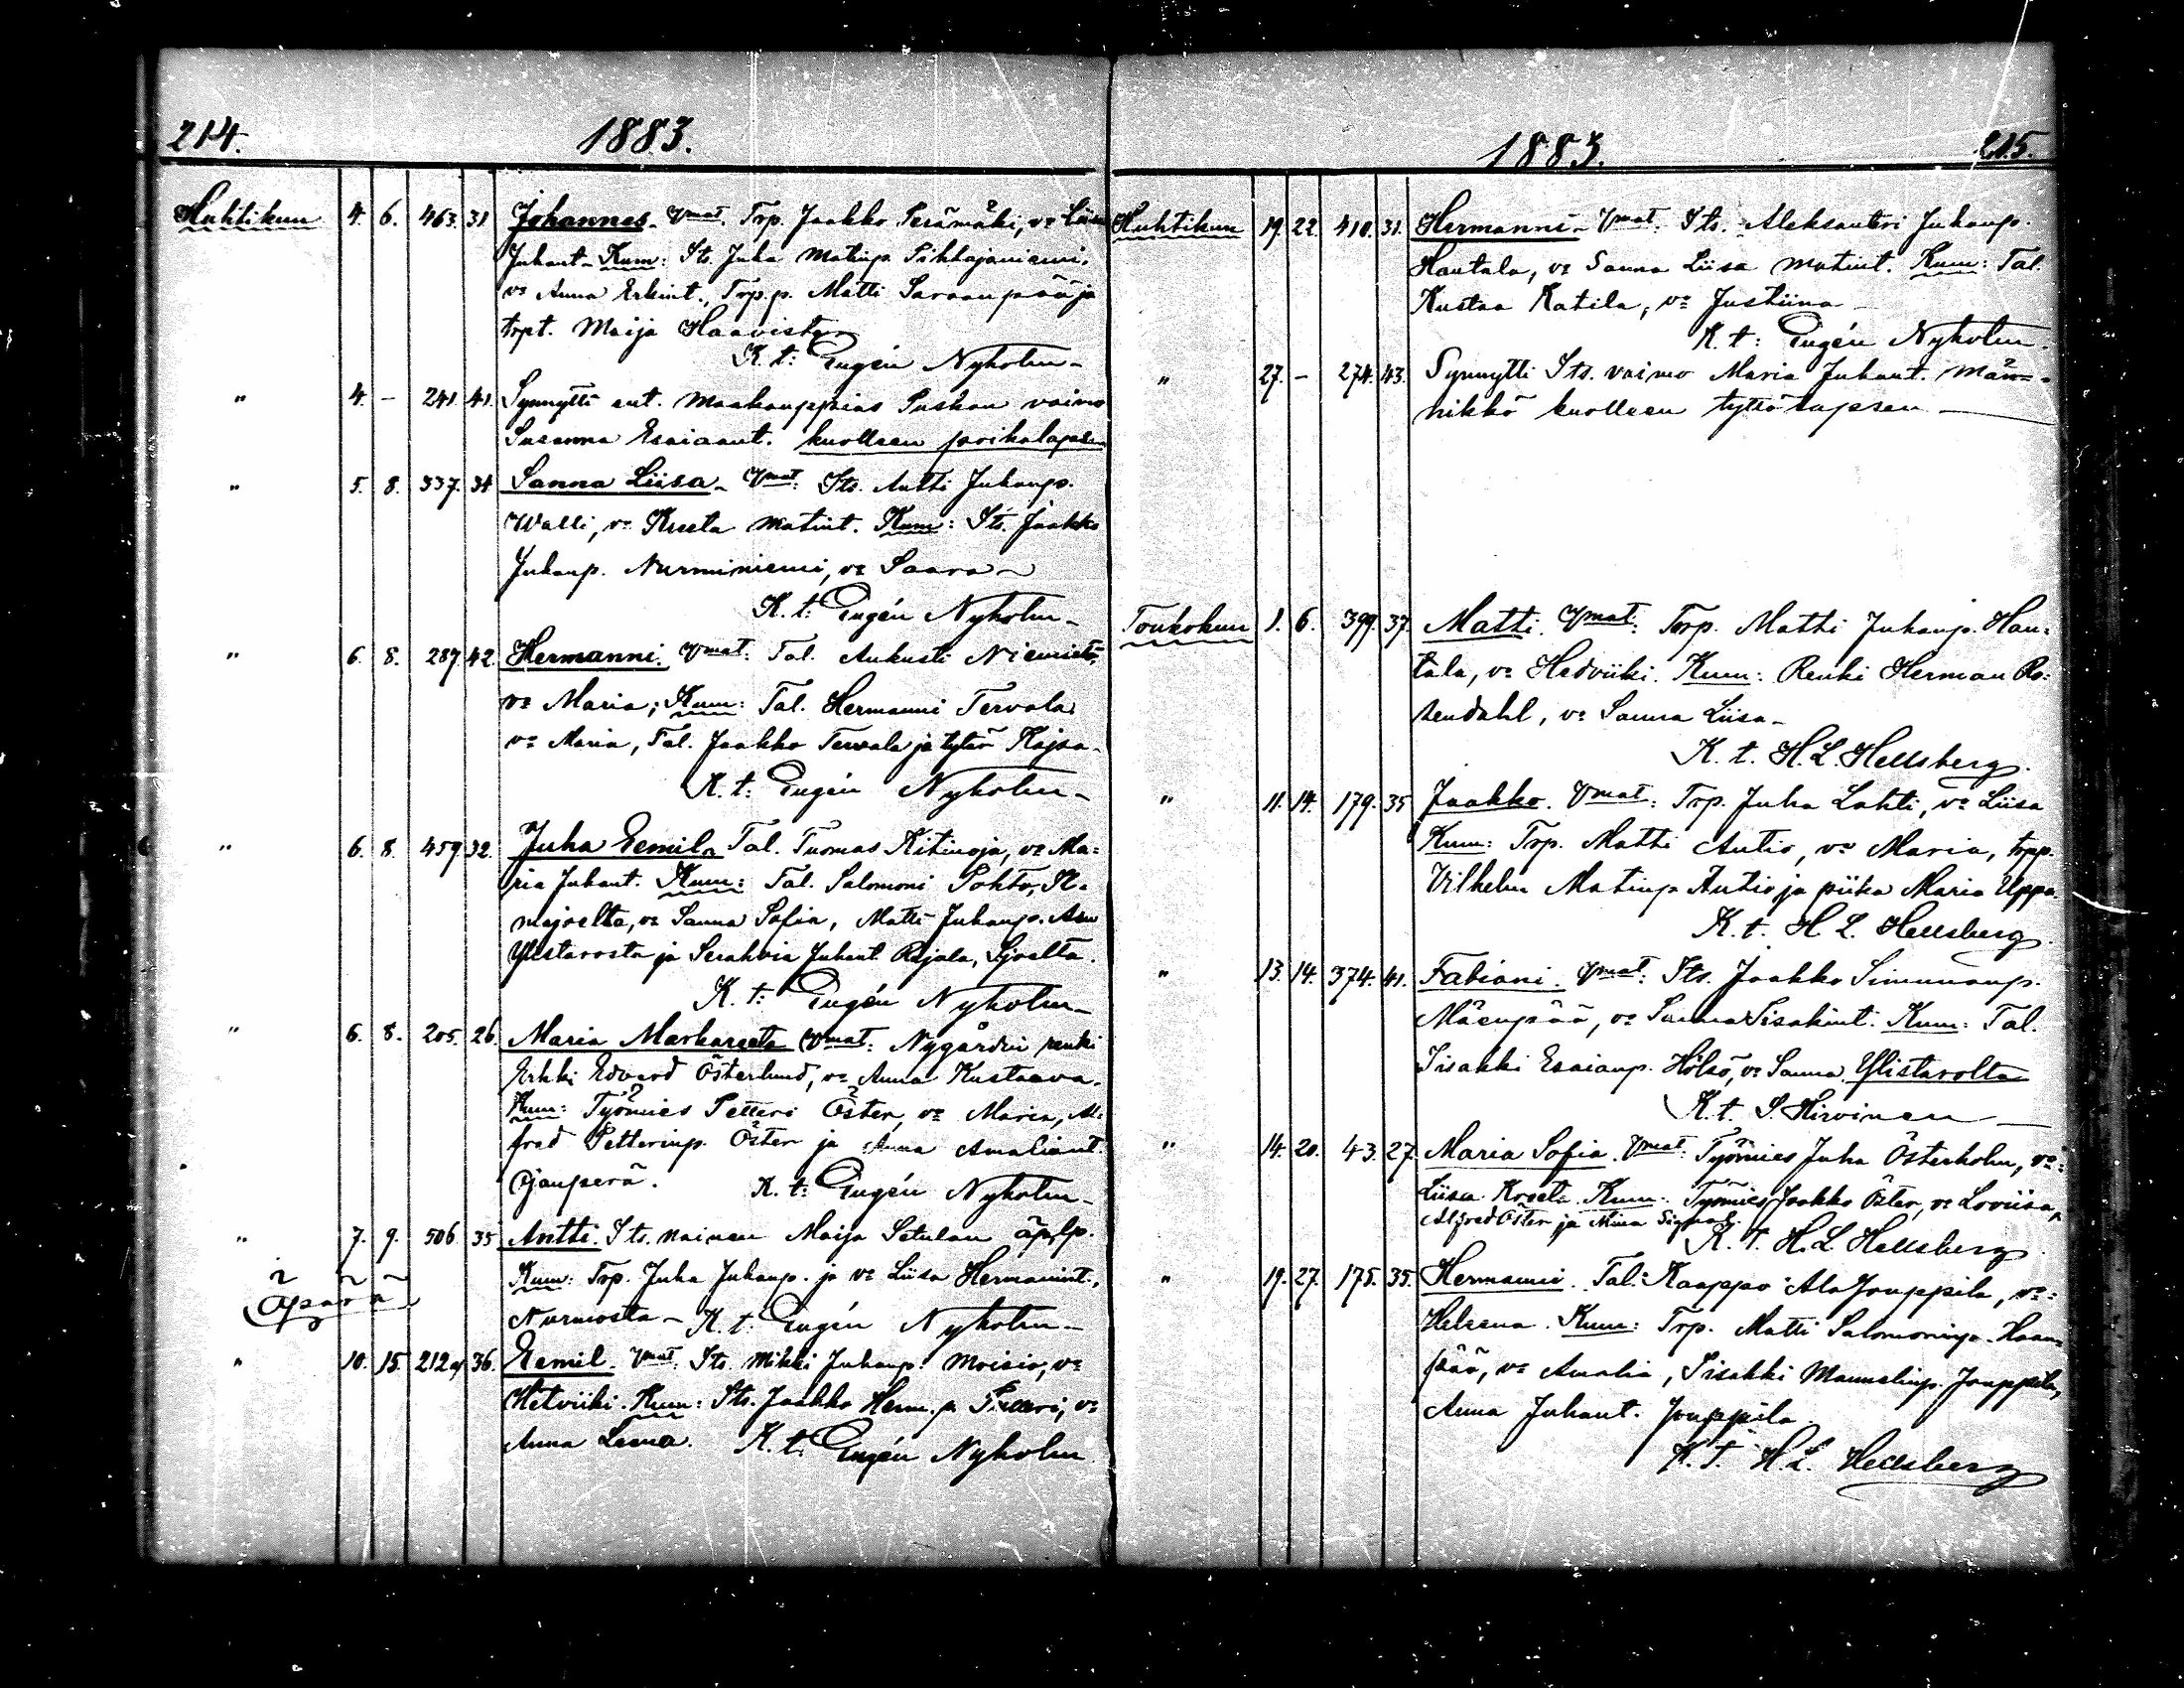 214. 1883.
Huhtikuu 4. 6. 463. 31 Johannes. Vmat. Trp. Jaakko Perämäki, vo Liisa
Juhant. Kum: Its. Juha Matinp. Pihlajaniemi,
vo Anna Erkint., Trp.p. Matti Saraanpää ja
trpt. Maija Haavisto
K. t: Eugén Nyholm
" 4. - 241. 41. Synnytti ent. Maakauppias vaimo
Susanna Esaiaant. kuolleen poikalapsen
" 5. 8. 337. 31 Sanna Liisa. Vmat: Its. Antti Juhanp.
Walli, vo Kreeta Matint. Kum: Its. Jaakko
Juhanp. Nurminiemi, vo Saara
K. t: Eugén Nyholm
" 6. 8. 287 42. Hermanni. Vmat: Tal. Aukusti Niemistö,
vo Maria; Kum: Tal. Hermanni Tervala
vo Maria, Tal. Jaakko Tervala ja tytär Kajsa.
K. t: Eugén Nyholm
" 6. 8. 459 32. Juha Eemil. Tal. Tuomas Kitinoja, vo Ma=
ria Juhant. Kum: Tal. Salomoni Pohto,
majoelta, vo Sanna Sofia, Matti Juhanp.
Ylistarosta ja Serahvia Juhant. Rajala, Sjoelta.
K. t: Eugén Nyholm
" 6. 8. 205. 26. Maria Markareeta Vmat: Nygårdin renki
Erkki Edvard Österlund, vo Anna Kustaava.
Kum: Työmies Petteri Öster, vo Maria, Al=
fred Petterinp. Öster ja Anna Amaliant.
Ojanperä. K. t: Eugén Nyholm
" 7. 9. 506 35 Antti. Its. nainen Maija Setulan äp.lp.
Äpärä Kum: Trp. Juha Juhanp. ja vo Liisa Hermannint.,
Nurmosta. K. t: Eugén Nyholm
" 10. 15. 212 36. Eemil. Vmat. Its. Mikki Juhanp. Moisio, vo
Hetviiki. Kum: Its. Jaakko Herm.p. vo
Anna Leena. K. t. Eugén Nyholm
1883. 215.
Huhtikuu 19. 22. 410. 31. Hermanni. Vmat: Its. Aleksanteri Juhanp.
Hautala, vo Sanna Liisa Matint. Kum: Tal.
Kustaa Katila, vo Justiina
K. t: Eugén Nyholm.
" 27. - 274. 43. Synnytti Its. vaimo Maria Juhant. Män=
nikkö kuolleen tyttölapsen
Toukokuu 1. 6. 399. 37. Matti. Vmat: Torp. Matti Juhanp. Hau=
tala, vo Hedviiki. Kum: Renki Herman Ro=
sendahl, vo Sanna Liisa
K. t. H. L. Hellsberg.
" 11. 14. 179. 35 Jaakko. Vmat: Trp. Juha Lahti, vo Liisa
Kum: Trp. Matti Autio, vo Maria, trpp.
Vilhelm Matinp. Autio ja piika Maria Uppa
K. t. H L. Hellsberg.
" 13. 14. 374. 41. Fabiani. Vmat: Its. Jaakko Simunanp.
Mäenpää, vo Sanna Iisakint. Kum: Tal.
Iisakki Esaianp. Hölsö, vo Sanna, Ylistarolta
K. t. S. Hirvinen
" 14. 20. 43. 27. Maria Sofia. Vmat: Työmies Juha Österholm, vo:
Liisa Kreeta. Kum: Työmies Jaakko Öster, vo Loviisa,
Alfred Öster ja Miina
K. T. H. L. Hellsberg
" 19. 27. 175. 35. Hermanni. Tal: Kaappo Ala Jouppila, vo:
Heleena. Kum: Trp. Matti Salomoninp. Haan=
pää, vo Amalia, Iisakki Mannelinp. Jouppila,
Anna Juhant. Jouppila.
K. T. H. L. Hellsberg